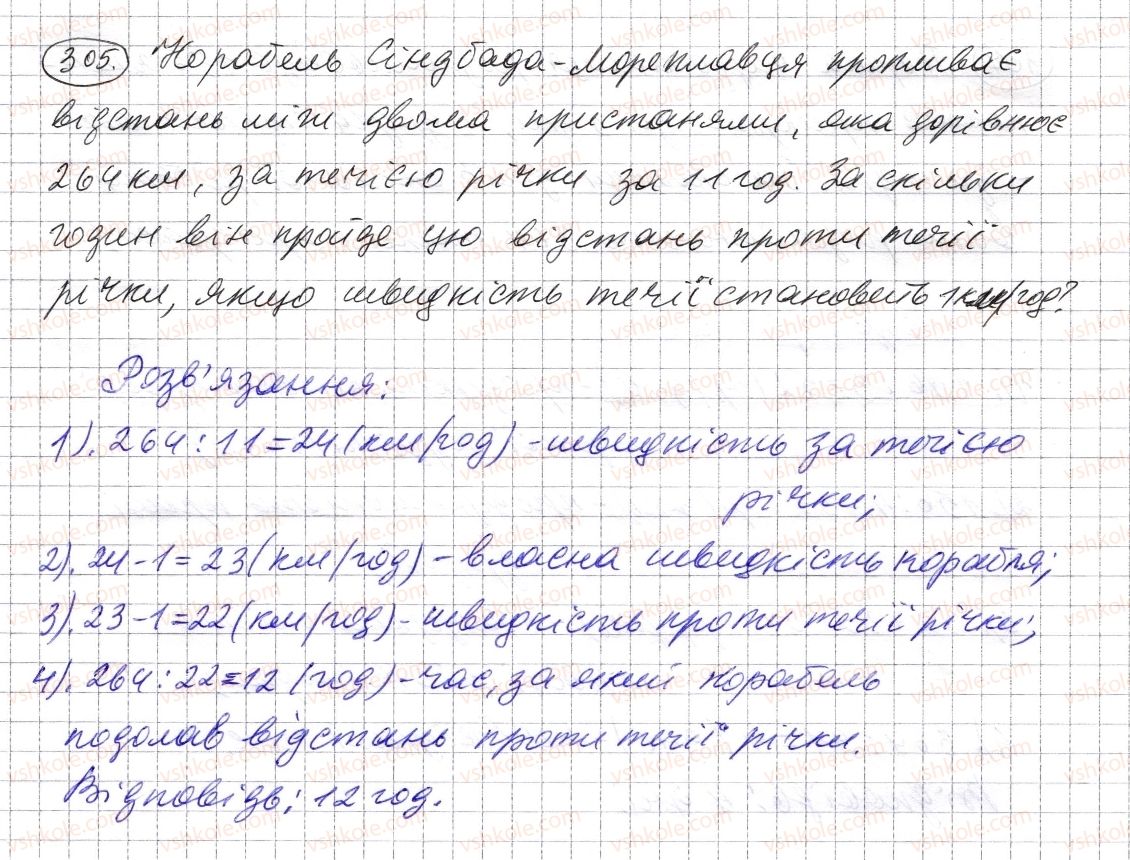 305. Корабель Сіндбада-Мореплавця пропливає
відстань між двома пристанями, яка дорівнює
264 км, за течією річки за 11 год. За скільки
годин він пройде цю відстань проти течії
річки, якщо швидкість течії становить 1 км/год?
Розв'язання:
1). 264 : 11 = 24 (км/год) - швидкість за течією
річки;
2). 24 - 1 = 23 (км/год) - власна швидкість корабля;
3). 23 - 1 = 22 (км/год) - швидкість проти течії річки;
4). 264 : 22 = 12 (год) - час, за який корабель
подолав відстань проти течії річки.
Відповідь: 12 год.